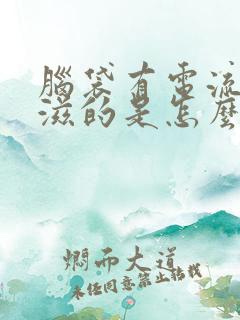 腦袋有電流
滋的是怎麼
燜而大道
未任同意禁止轉載